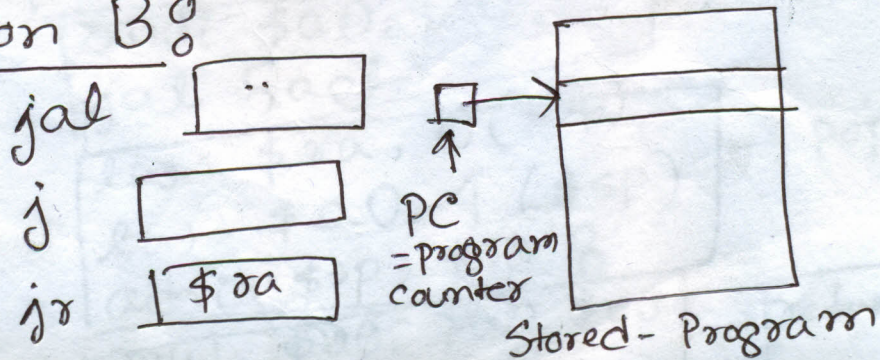 on B:
jal ..
j
jr $ra
PC
=program
counter
Stored-Program